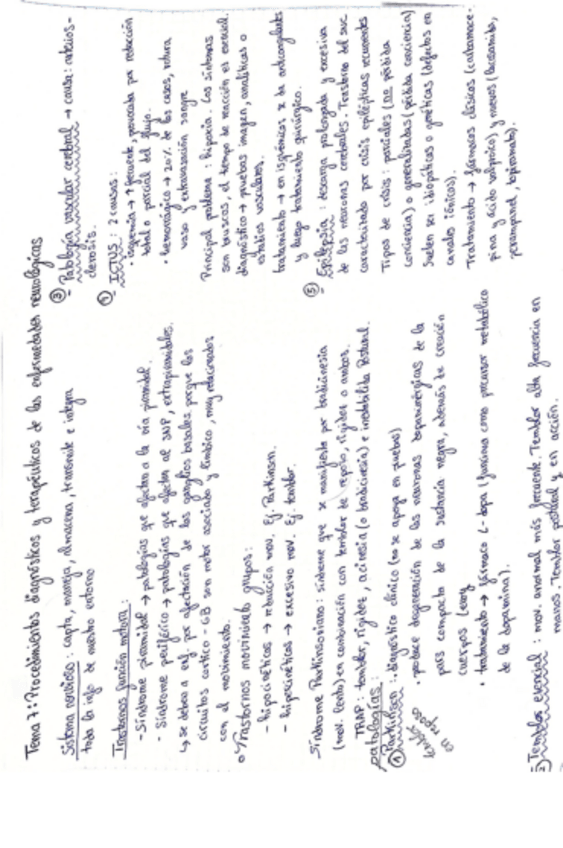 Tema 7: Procedimientos diagnósticos y terapéuticos de las enfermedades neurológicas
Sistema nervioso: capta, maneja, almacena, transmite e integra
toda la info de nuestro entorno
Trastornos función motora:
- Síndrome piramidal → patologías que afectan a la vía piramidal.
- Síndrome periférico → patologías que afectan al SNP, extrapiramidales.
↳ se deben a enf por afectación de los ganglios basales porque los
circuitos cortico - GB son motor asociado y límbico, muy relacionados
con el movimiento.
Trastornos movimiento grupos:
- hipocinéticos → reducción mov. Ej. Parkinson.
- hipercinéticos → excesivo mov. Ej. temblor.
Síndrome Parkinsoniano: síndrome que se manifiesta por bradicinesia
(mov. lento) en combinación con temblor de reposo, rigidez o ambos.
TRAP: temblor, rigidez, acinesia (o bradicinesia) e inestabilidad Postural.
patologías:
① Parkinson: diagnóstico clínico (no se apoya en pruebas)
temblor en reposo
• produce degeneración de las neuronas dopaminérgicas de la
pars compacta de la sustancia negra, además de creación
cuerpos Lewy
• tratamiento → fármaco L-dopa (funciona como precursor metabólico
de la dopamina).
② Temblor esencial: mov. anormal más frecuente. Temblor alta frecuencia en
manos. Temblor postural y en acción.
③ Patología vascular cerebral → causa: arterios-
clerosis.
④ ICTUS: 2 causas:
• isquemia → ↑ frecuente, provocada por reducción
total o parcial del flujo.
• hemorrágico → 20% de los casos, rotura
vaso y extravasación sangre
Principal problema: hipoxia. Los síntomas
son bruscos, el tiempo de reacción es esencial.
diagnóstico → pruebas imagen, analíticas o
estudios vasculares.
tratamiento → en isquémicos x ta anticoagulantes
y luego tratamiento quirúrgico.
⑤ Epilepsia: descarga prolongada y excesiva
de las neuronas cerebrales. Trastorno del SNC
caracterizado por crisis epilépticas recurrentes
Tipos de crisis: parciales (no pérdida
conciencia) o generalizadas (pérdida conciencia)
Suelen ser idiopáticas o genéticas (defectos en
canales iónicos).
Tratamiento → fármacos clásicos (carbamace-
pina y ácido valproico) y nuevos (lacosamida,
perampanel, topiramato).